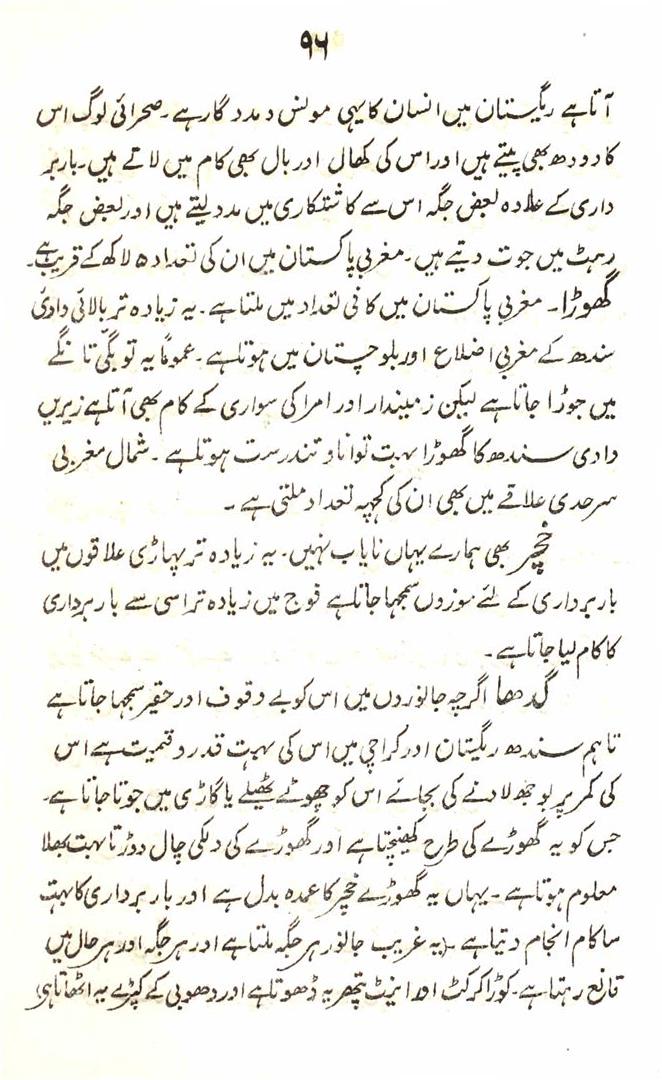 ۹۶
آتا ہے ریگستان میں انسان کا یہی مونس و مددگار ہے۔ صحرائی لوگ اس
کا دودھ بھی پیتے ہیں اور اس کی کھال اور بال بھی کام میں لاتے ہیں۔ باربر
داری کے علاوہ بعض جگہ اس سے کاشتکاری میں مدد لیتے ہیں اور بعض جگہ
رہٹ میں جوت دیتے ہیں۔ مغربی پاکستان میں ان کی تعداد ۵ لاکھ کے قریب ہے۔
گھوڑا۔ مغربی پاکستان میں کافی تعداد میں ملتا ہے۔ یہ زیادہ تر بالائی وادئ
سندھ کے مغربی اضلاع اور بلوچستان میں ہوتا ہے۔ عموماً یہ تو بگّی تانگے
میں جوڑا جاتا ہے لیکن زمیندار اور امرا کی سواری کے کام بھی آتا ہے زیریں
وادی سندھ کا گھوڑا بہت توانا و تندرست ہوتا ہے۔ شمال مغربی
سرحدی علاقے میں بھی ان کی کچھ تعداد ملتی ہے ۔
خچر بھی ہمارے یہاں نایاب نہیں۔ یہ زیادہ تر پہاڑی علاقوں میں
باربرداری کے لئے موزوں سمجھا جاتا ہے فوج میں زیادہ تر اسی سے باربرداری
کا کام لیا جاتا ہے ۔
گدھا اگرچہ جانوروں میں اس کو بے وقوف اور حقیر سمجھا جاتا ہے
تاہم سندھ ریگستان اور کراچی میں اس کی بہت قدر و قیمت ہے اس
کی کمر پر بوجھ لادنے کی بجائے اس کو چھوٹے ٹھیلے یا گاڑی میں جوتا جاتا ہے۔
جس کو یہ گھوڑے کی طرح کھینچتا ہے اور گھوڑے کی دلکی چال دوڑتا بہت بھلا
معلوم ہوتا ہے۔ یہاں یہ گھوڑے خچر کا عمدہ بدل ہے اور باربرداری کا بہت
سا کام انجام دیتا ہے ۔ یہ غریب جانور ہر جگہ ملتا ہے اور ہر جگہ اور ہر حال میں
قانع رہتا ہے۔ کوڑا کرکٹ اور اینٹ پتھر یہ ڈھوتا ہے اور دھوبی کے کپڑے یہ اٹھاتا ہے